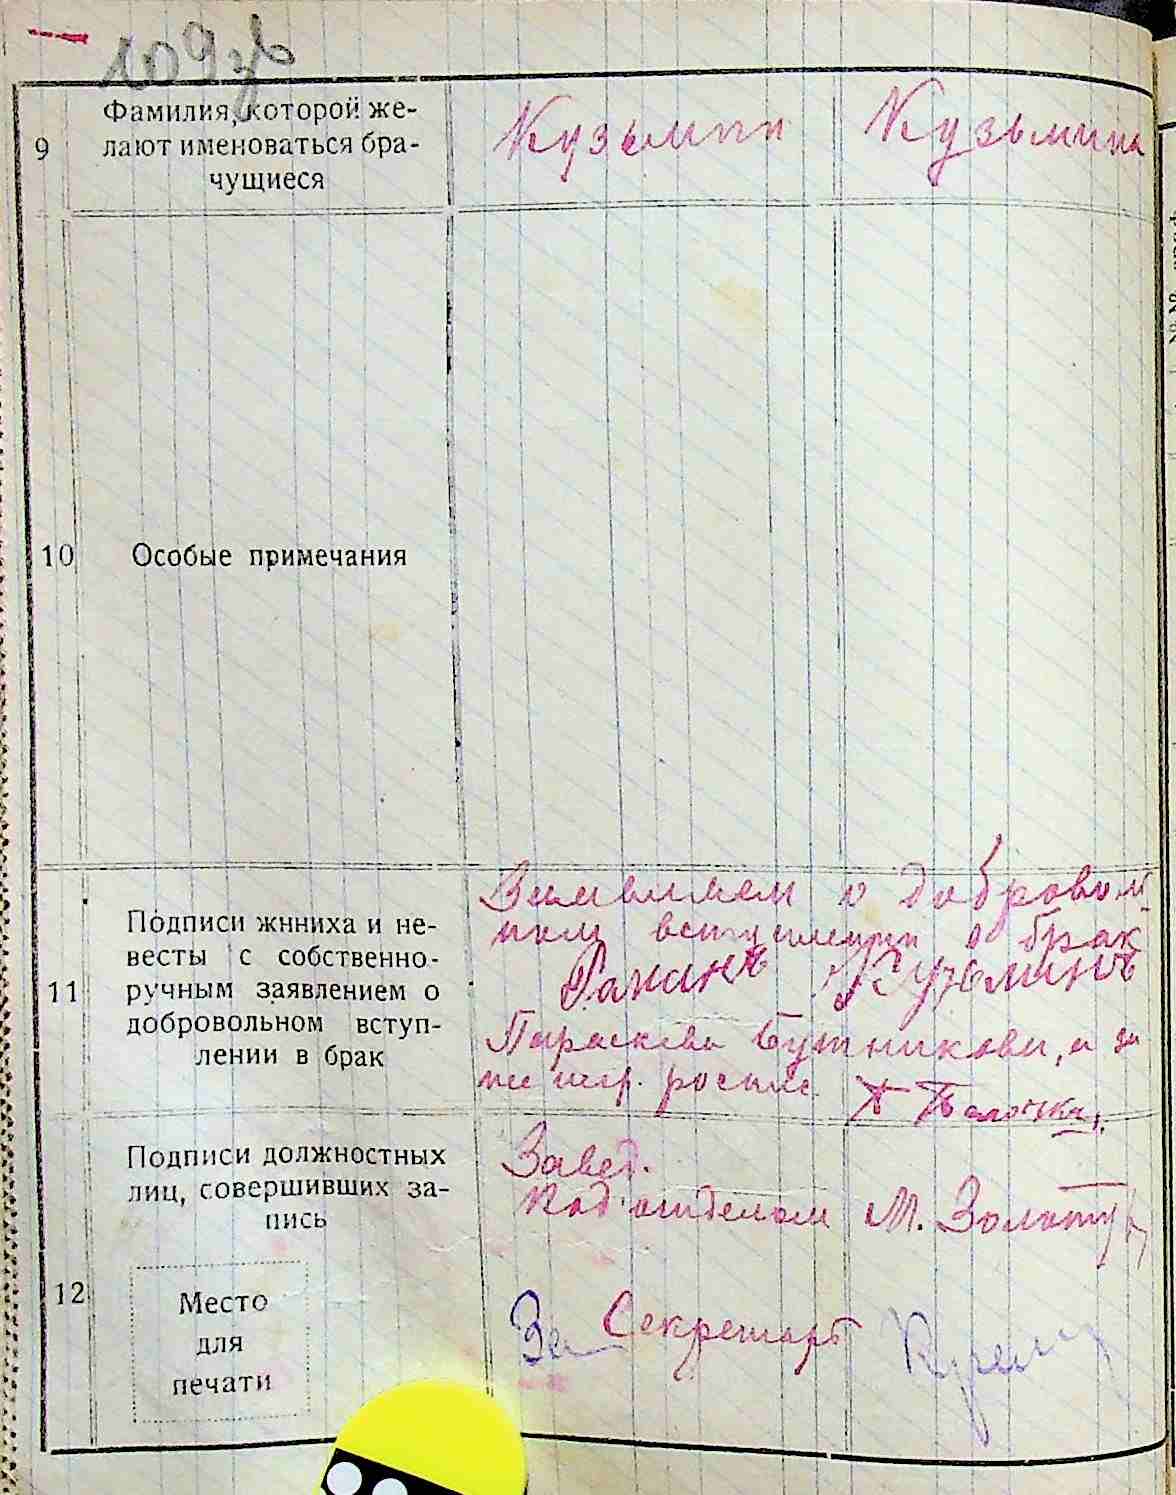 109
9
Фамилия, которой же-
лают именоваться бра-
чущиеся
Кузьмин
Кузьмина
10
Особые примечания
11
Подписи жнниха и не-
весты с собственно-
ручным заявлением о
добровольном вступ-
лении в брак
Заявляем о добровол
ном вступлении в брак
Кузьминъ
Параскева Бутникова, а за
не
12
Подписи должностных
лиц, совершивших за-
пись
Завед.
Под'отделом М.
За Секретарь
Место
для
печати